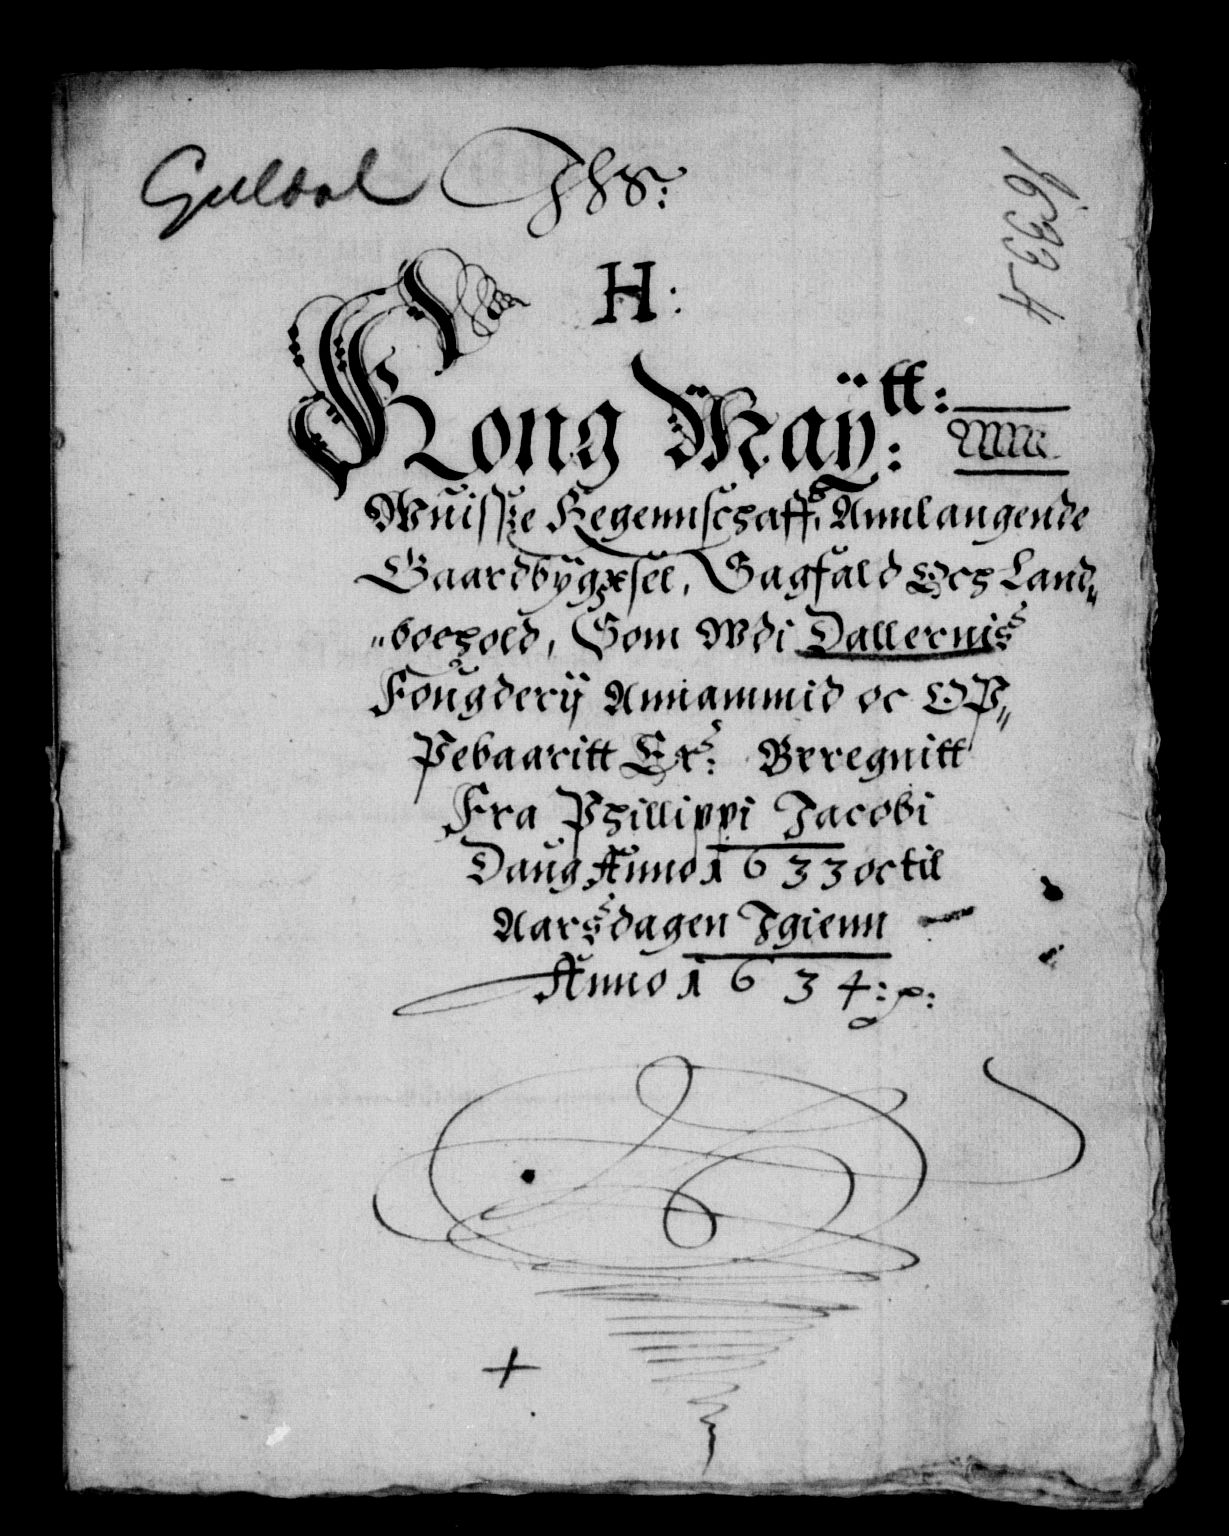 Guldal Jhs:
1633.4
H:
Kong Maÿ:tt:
Wuisse Regennschaff, Annlangende
Gaardbÿgxsel, Sagfald Och Land„
„boehold, Som Wdi Dallernis
Fougderij Annammid oc OP„
Pebaaritt Er: Berregnitt
Fra Phillippi Jacobi
Daug Anno 1633 oc til
Aarsdagen Igienn
Anno 1634: